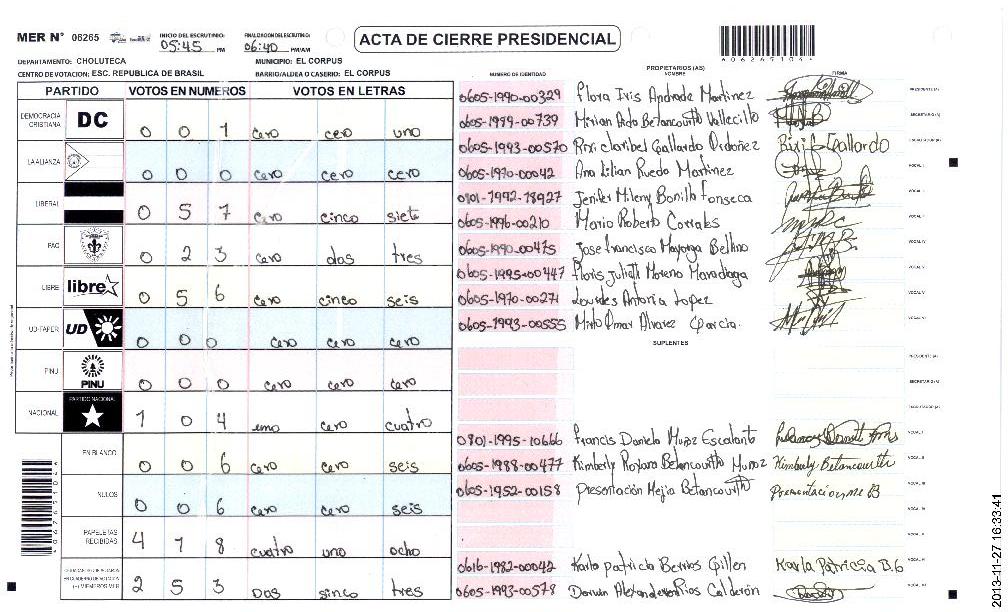 MER N° 06265 INICIO DEL ESCRUTINIO: 05:45 PM FINALIZACION DEL ESCRUTINIO: 06:40 PM/AM
ACTA DE CIERRE PRESIDENCIAL
DEPARTAMENTO: CHOLUTECA MUNICIPIO: EL CORPUS
CENTRO DE VOTACION: ESC. REPUBLICA DE BRASIL BARRIO/ALDEA O CASERIO: EL CORPUS
PARTIDO VOTOS EN NUMEROS VOTOS EN LETRAS
DEMOCRACIA CRISTIANA DC 0 0 1 cero cero uno
LA ALIANZA 0 0 0 cero cero cero
LIBERAL 0 5 7 cero cinco siete
PAC 0 2 3 cero dos tres
LIBRE libre 0 5 6 cero cinco seis
UD-FAPER UD 0 0 0 cero cero cero
PINU PINU 0 0 0 cero cero cero
NACIONAL PARTIDO NACIONAL 1 0 4 uno cero cuatro
EN BLANCO 0 0 6 cero cero seis
NULOS 0 0 6 cero cero seis
PAPELETAS RECIBIDAS 4 1 8 cuatro uno ocho
2 5 3 Dos sinco tres
PROPIETARIOS (AS)
NUMERO DE IDENTIDAD NOMBRE FIRMA
0605-1990-00329 Flora Iris Andrade Martinez PRESIDENTE (A)
0605-1979-00739 Mirian Aida Betancourth Vallecillo SECRETARIO (A)
0605-1993-00570 Rixi claribel Gallardo Ordoñez Rixi Gallardo ESCRUTADOR (A)
0605-1970-00042 Ana Lilian Rueda Martinez VOCAL I
0101-1992-78927 Jenifer Mileny Bonilla Fonseca VOCAL II
0605-1996-00210 Mario Roberto Corrales
0605-1990-00475 Jose Francisco Mayorga Bellino VOCAL IV
0605-1995-00447 Floris Julieth Moreno Maradiaga VOCAL V
0605-1970-00271 Lourdes Antonia Lopez
0605-1993-00555 Mirto Omar Alvarez Garcia.
SUPLENTES
PRESIDENTE (A)
SECRETARIO (A)
ESCRUTADOR (A)
0801-1995-10666 Francis Daniela Muñoz Escalante VOCAL I
0605-1988-00477 Kimberly Roxana Betancourth Munoz Kimberly Betancourth VOCAL II
0605-1952-00158 Presentación Mejia Betancourth Presentacion MB VOCAL III
0616-1982-00042 Karla patricia Berrios Guillen Karla Patricia B.G
0605-1993-00578 Darwin Alexander Rios Calderón
2013-11-27 16:33:41